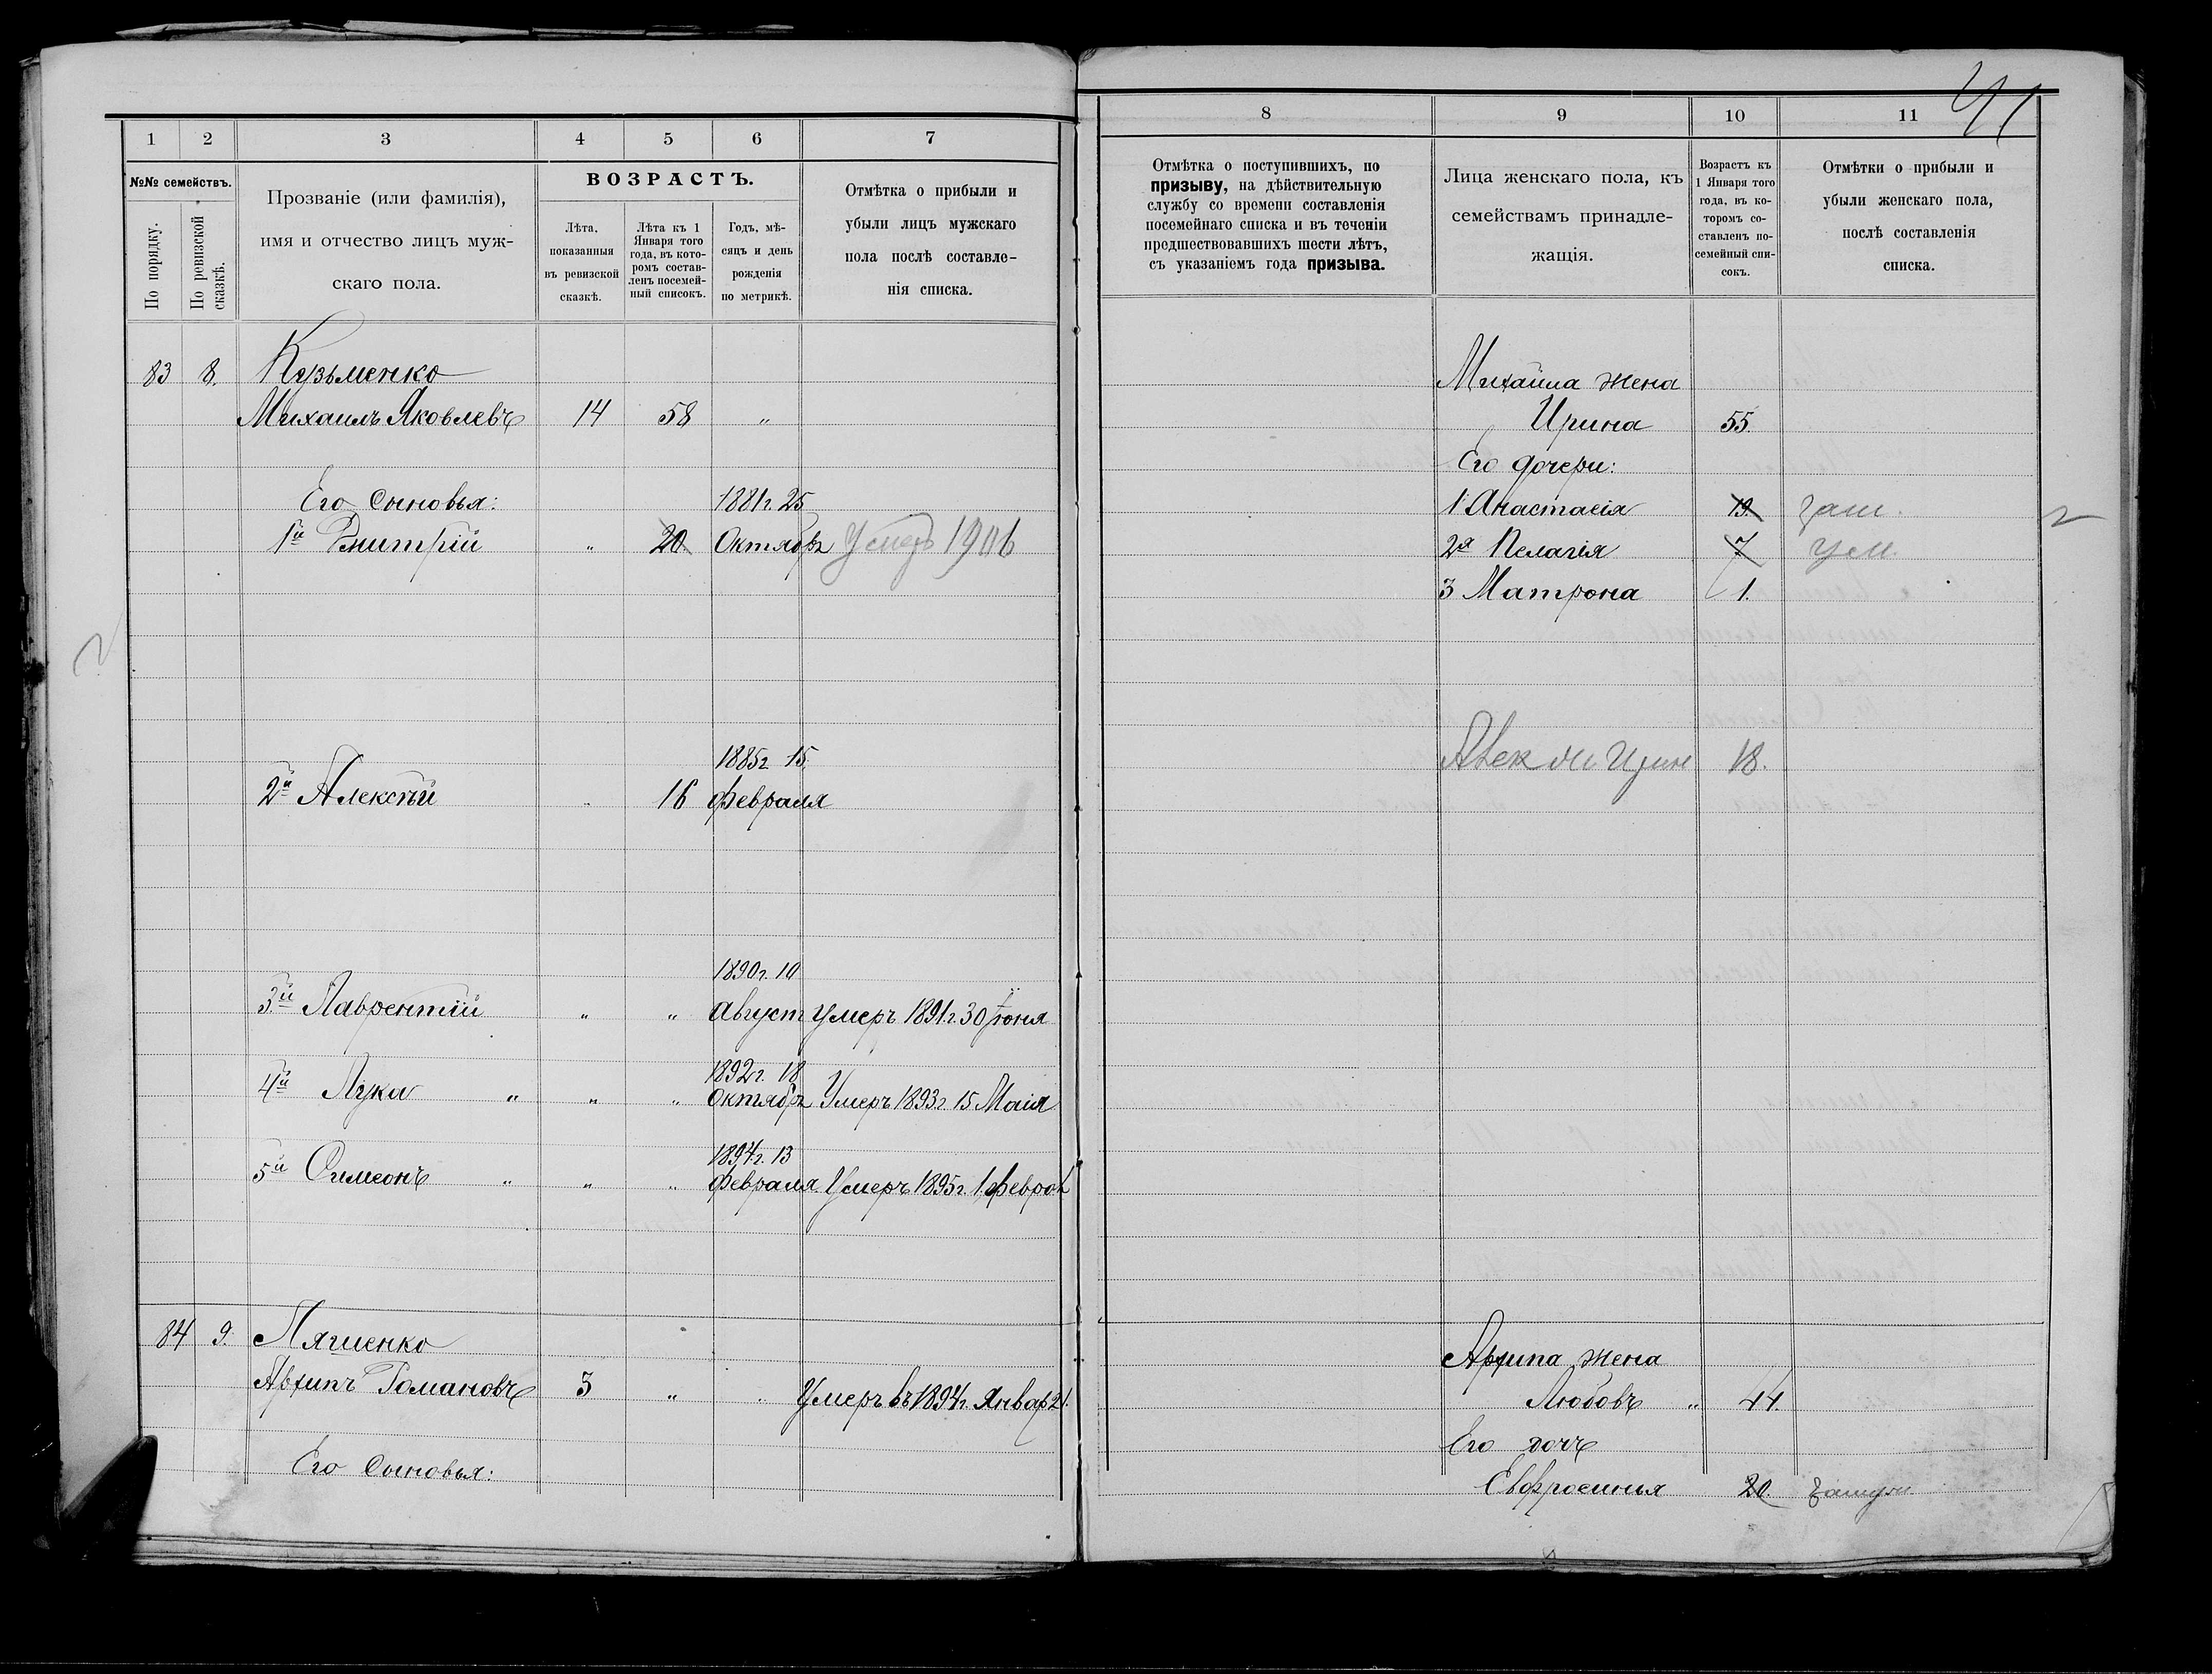 1 2 3 4 5 6 7
№№ семействъ.
По порядку.
По ревизской сказкѣ.
Прозваніе (или фамилія),
имя и отчество лицъ муж-
скаго пола.
ВОЗРАСТЪ.
Лѣта,
показанныя
въ ревизской
сказкѣ.
Лѣта къ 1
Января того
года, въ кото-
ромъ состав-
ленъ посемей-
ный списокъ.
Годъ, мѣ-
сяцъ и день
рожденія
по метрикѣ.
Отмѣтка о прибыли и
убыли лицъ мужскаго
пола послѣ составле-
нія списка.
83 8. Кузьменко
Михаилъ Яковлевъ 14 58 "
Его Сыновья: 1881г. 25
1й Дмитрій " 20. Октябр Умеръ 1906
1885г 15.
2й Алексѣй " 16 февраля
1890г. 10
3й Лаврентій " " Август Умеръ 1891г. 30 Іюня
1892г. 18
4й Лука " " " Октябр Умеръ 1893г 15 Маія
1894г. 13
5й Симеонъ " " " февраля Умеръ 1895г. 1 февр
84 9. Ляшенко
Архипъ Романовъ 3 " " Умеръ въ 1894г. Январ 21.
Его Сыновья:
8 9 10 11
41
Отмѣтка о поступившихъ, по
призыву, на дѣйствительную
службу со времени составленія
посемейнаго списка и въ теченіи
предшествовавшихъ шести лѣтъ,
съ указаніемъ года призыва.
Лица женскаго пола, къ
семействамъ принадле-
жащія.
Возрастъ къ
1 Января того
года, въ ко-
торомъ со-
ставленъ по-
семейный спи-
сокъ.
Отмѣтки о прибыли и
убыли женскаго пола,
послѣ составленія
списка.
Михаила жена
Ирина 55.
Его дочери:
1 Анастасія 19. зам.
2я Пелагія 7 ум.
3 Матрона 1.
Алек 18.
Архипа жена
Любовь " 44.
Его дочь
Евфросинья 20. замуж